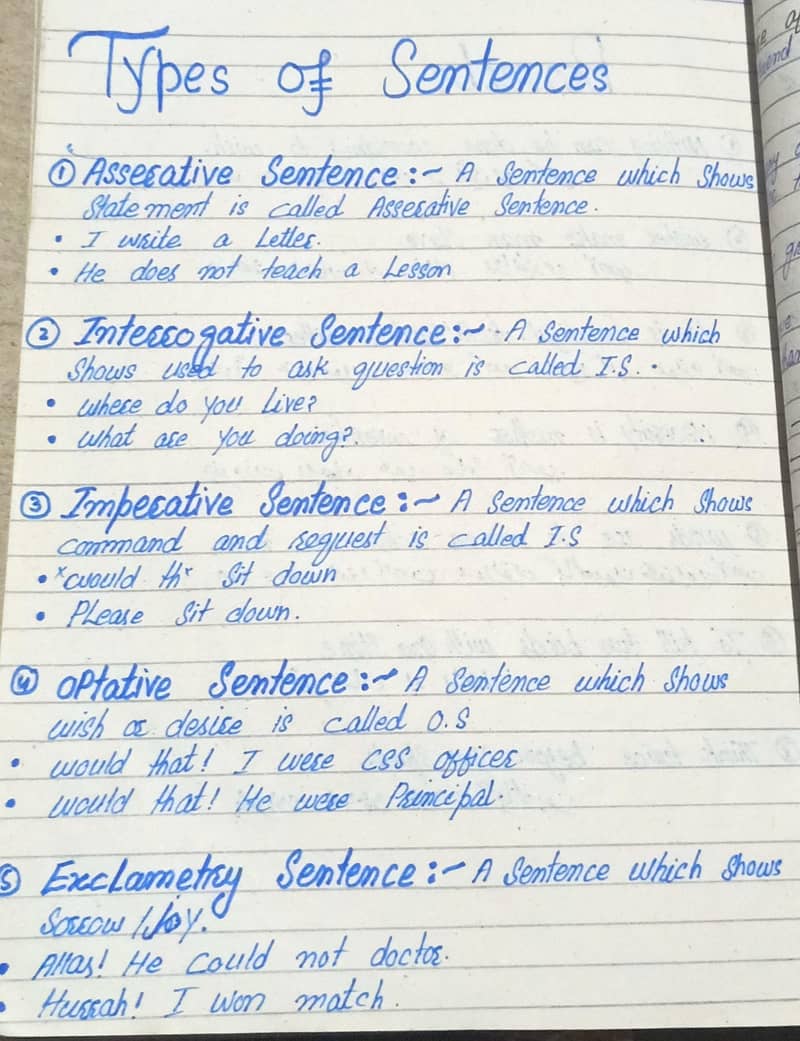 Types of Sentences
① Asserative Sentence:- A Sentence which Shows
Statement is called Asserative Sentence.
• I write a Letter.
• He does not teach a Lesson
② Interrogative Sentence:- A Sentence which
Shows used to ask question is called I.S.
• where do you Live?
• what are you doing?
③ Imperative Sentence:- A Sentence which Shows
command and request is called I.S
• would th Sit down
• Please Sit down.
④ Optative Sentence:- A Sentence which Shows
wish or desire is called O.S
• would that! I were CSS officer
• would that! He were Princibal.
⑤ Exclametry Sentence:- A Sentence which Shows
Sorrow / Joy.
• Allas! He Could not doctor.
• Hurrah! I won match.